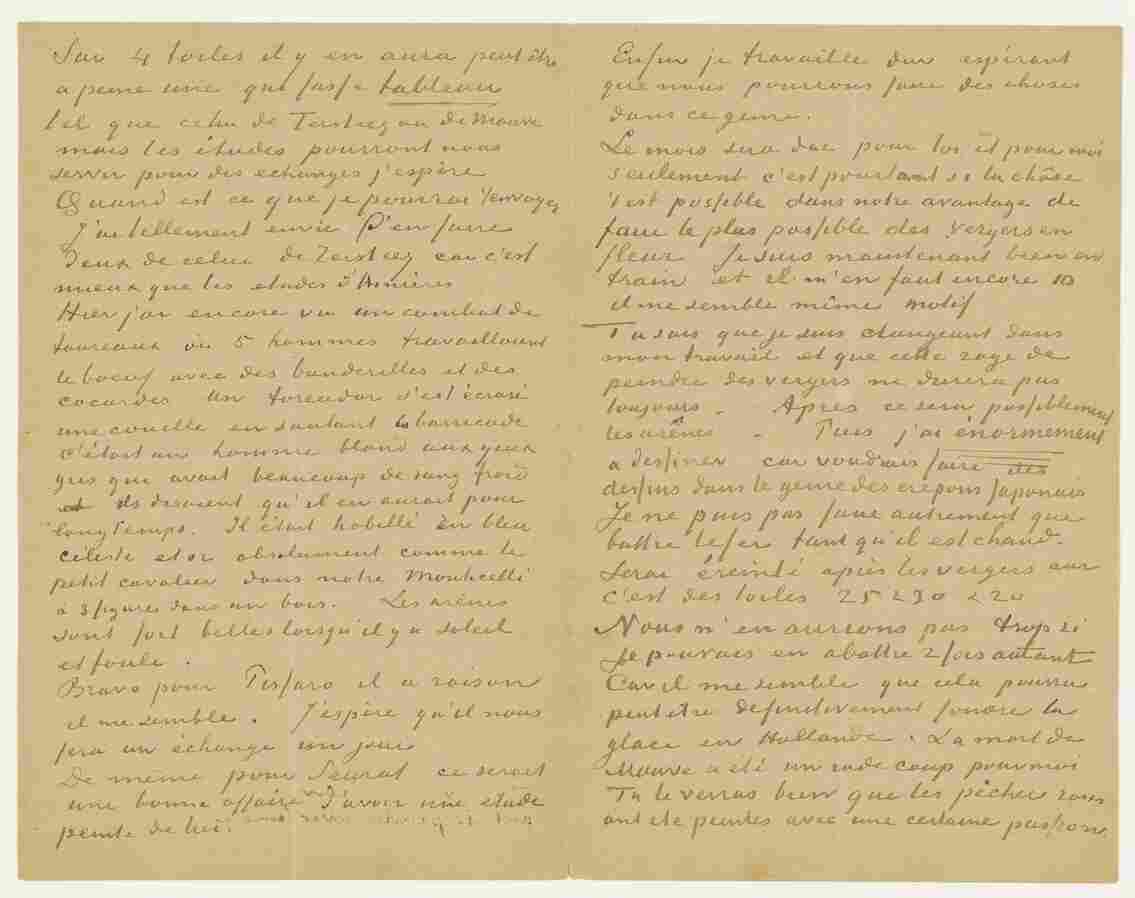 Sur 4 toiles il y en aura peut être
a peine une qui fasse tableau
tel que celui de Tersteeg ou de Mauve
mais les études pourront nous
servir pour des echanges j'espère
Quand est ce que je pourrai t'envoyer
J'ai tellement envie d'en faire
deux de celui de Tersteeg car c'est
mieux que les etudes d'Asnières
Hier j'ai encore vu un combat de
taureaux où 5 hommes travaillaient
le boeuf avec des banderilles et des
cocardes un toreador s'est écrasé
une couille en sautant la barricade
c'était un homme blond aux yeux
gris qui avait beaucoup de sang froid
ils disaient qu'il en aurait pour
longtemps. Il était habillé en bleu
céleste et or absolument comme le
petit cavalier dans notre Monticelli
à 3 figures dans un bois. Les arènes
sont fort belles lorsqu'il y a soleil
et foule.
Bravo pour Pissaro il a raison
il me semble. J'espère qu'il nous
fera un échange un jour
De même pour Seurat ce serait
une bonne affaire d'avoir une etude
peinte de lui.
Enfin je travaille dur espérant
que nous pourrons faire des choses
dans ce genre.
Le mois sera dur pour toi et pour moi
seulement c'est pourtant si la chôse
t'est possible dans notre avantage de
faire le plus possible des vergers en
fleur. Je suis maintenant bien en
train et il m'en faut encore 10
il me semble même motif
Tu sais que je suis changeant dans
mon travail et que cette rage de
peindre des vergers ne durera pas
toujours. Apres ce sera possiblement
les arènes. Puis j'ai énormement
a dessiner car voudrais faire des
dessins dans le genre des crepons japonais
Je ne puis pas faire autrement que
battre le fer tant qu'il est chaud.
Serai éreinté après les vergers car
c'est des toiles 25 & 30 & 20
Nous n'en aurions pas trop si
je pouvais en abattre 2 fois autant
Car il me semble que cela pourra
peut etre definitivement fondre la
glace en Hollande. La mort de
Mauve a eté un rude coup pour moi
Tu le verras bien que les pêchers roses
ont ete peintes avec une certaine passion.